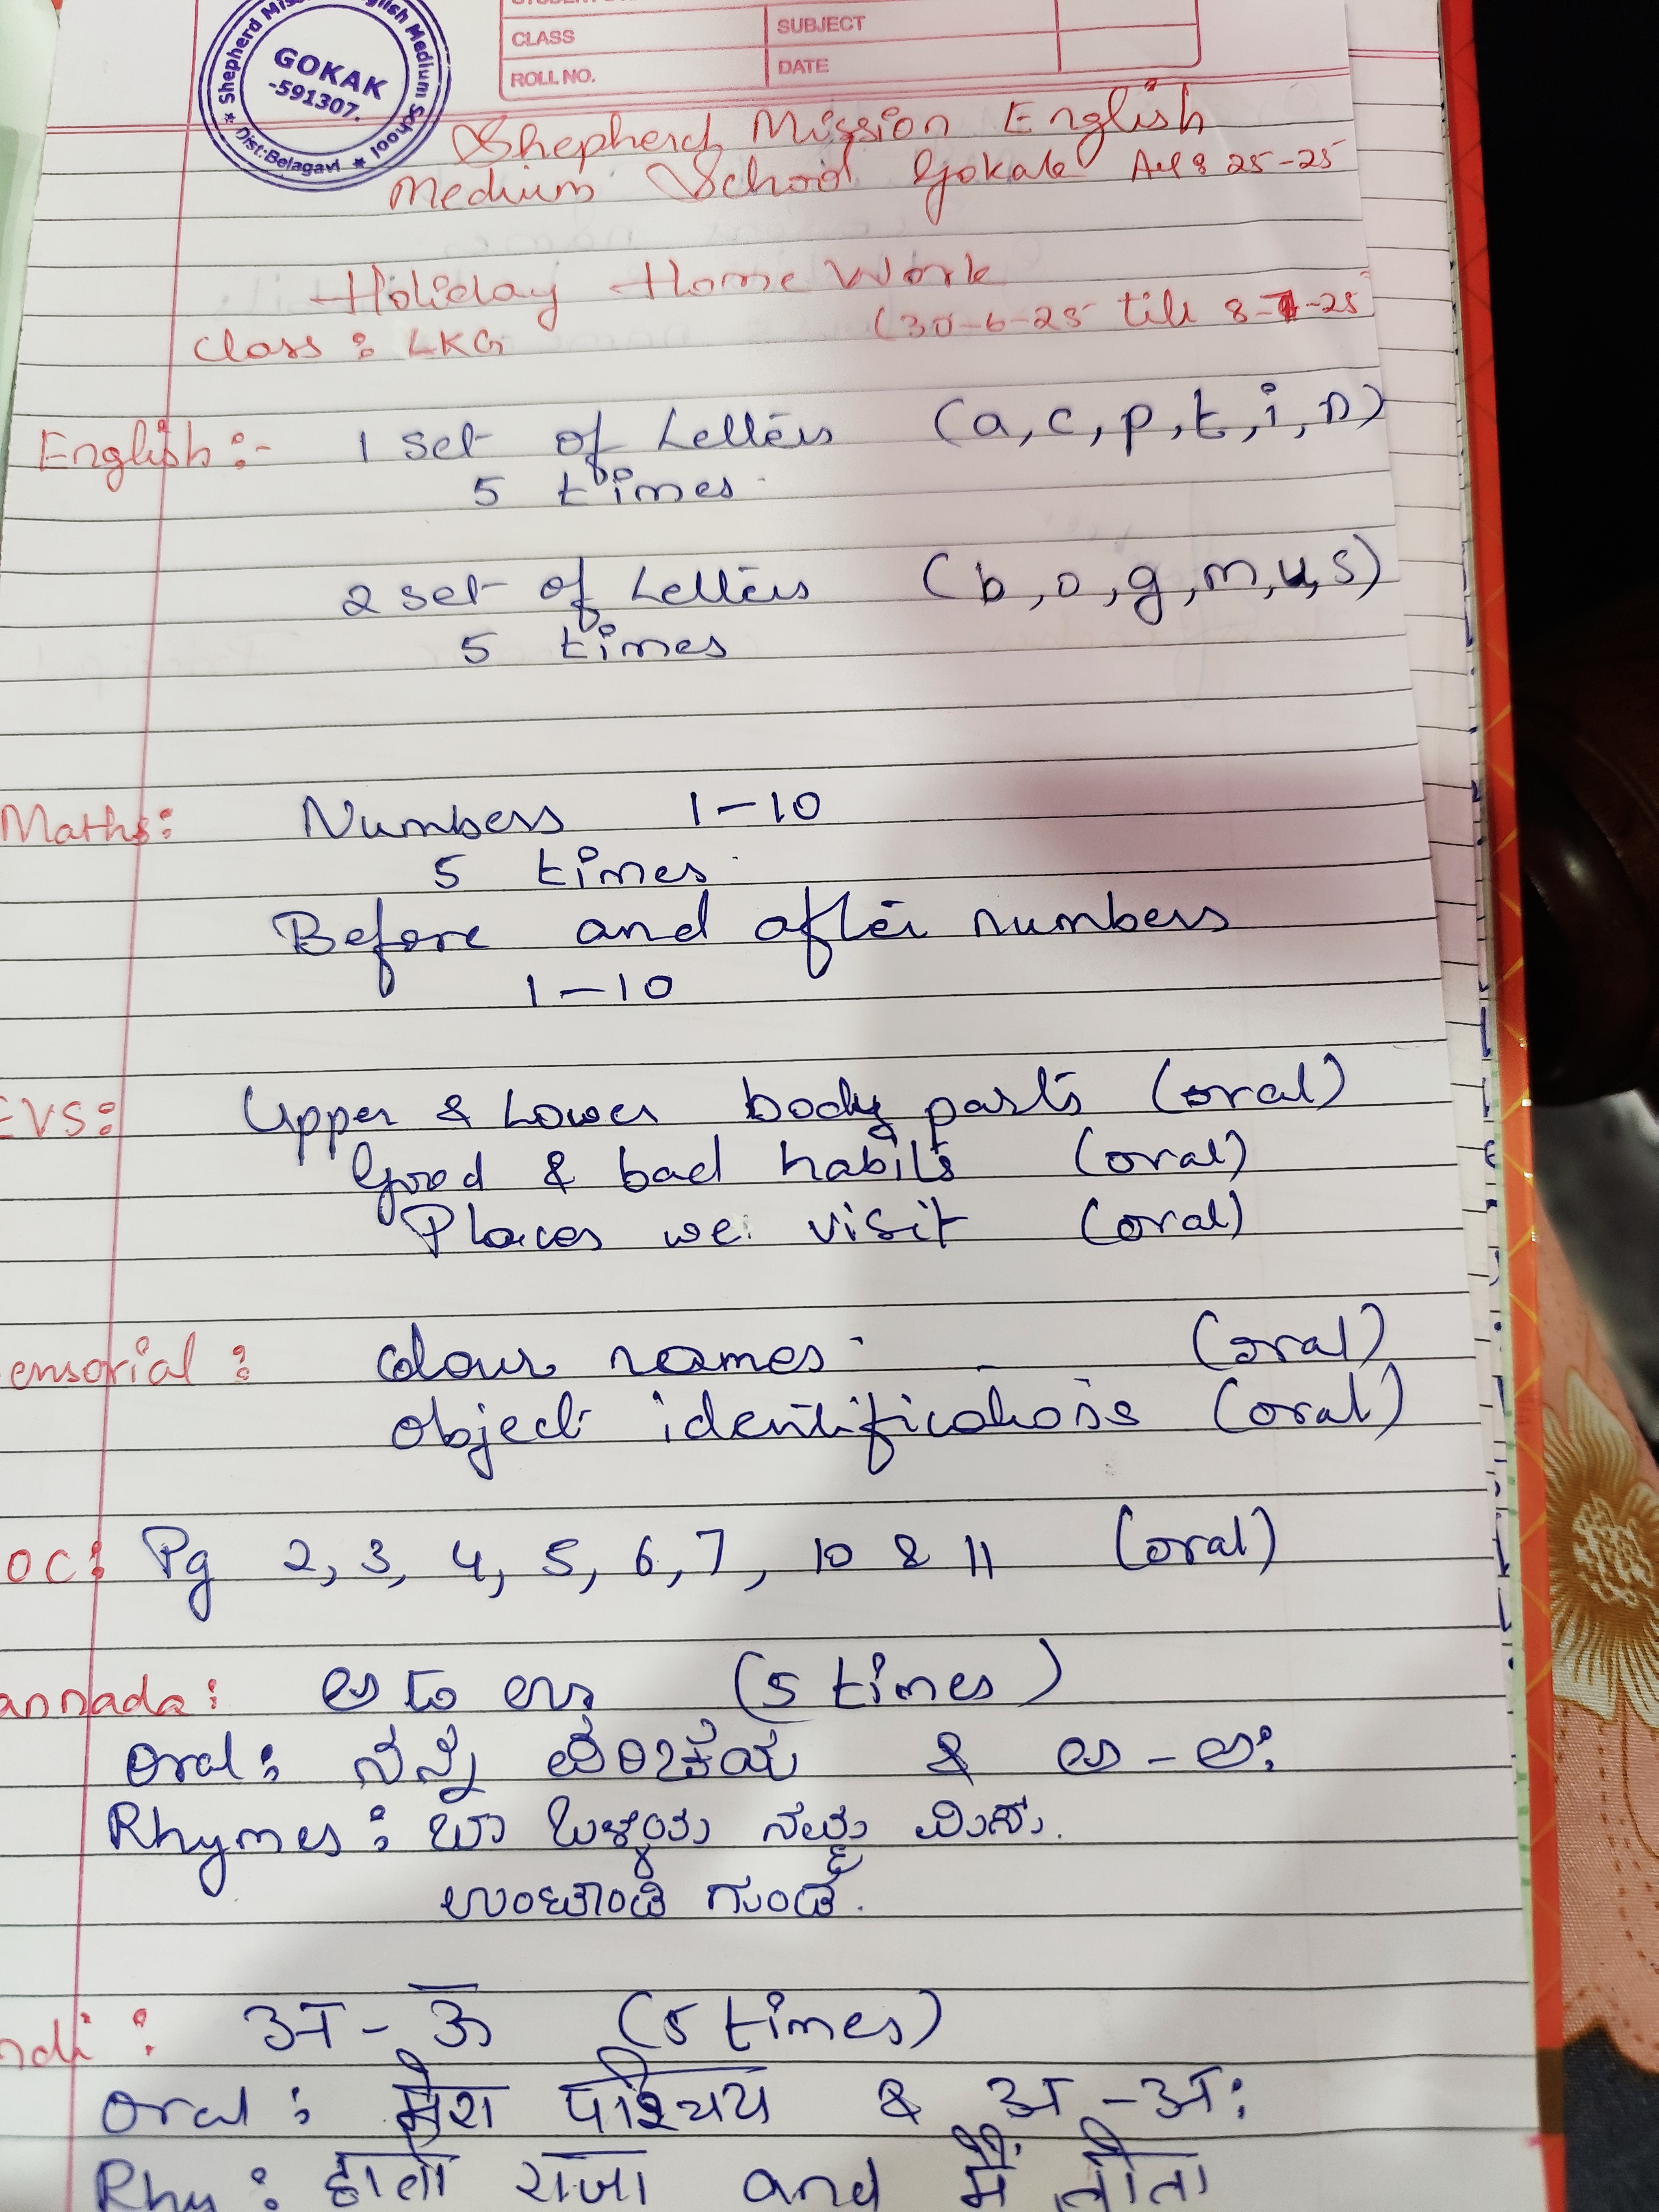 Shepherd Mission English Medium School
GOKAK
-591307.
Dist:Belagavi
CLASS
SUBJECT
ROLL NO.
DATE
Shepherd Mission English
Medium School Gokak 25-25
Holiday Home Work
(30-6-25 till 8-7-25
Class : LKG
English :- 1 set of Letters (a, c, p, t, i, n)
5 times
2 set of Letters (b, o, g, m, u, s)
5 times
Maths: Numbers 1-10
5 times
Before and after numbers
1-10
EVS: Upper & Lower body parts (oral)
Good & bad habits (oral)
Places we visit (oral)
ensorial : colour names (oral)
object identifications (oral)
OC: Pg 2, 3, 4, 5, 6, 7, 10 & 11 (oral)
annada: ಅ to ಊ (5 times)
Oral: ನನ್ನ ಪರಿಚಯ & ಅ - ಅಃ
Rhymes :
ndi : अ - ऊ (5 times)
Oral : मेरा परिचय & अ - अ:
Rhy : हाथी राजा and मैं तोता